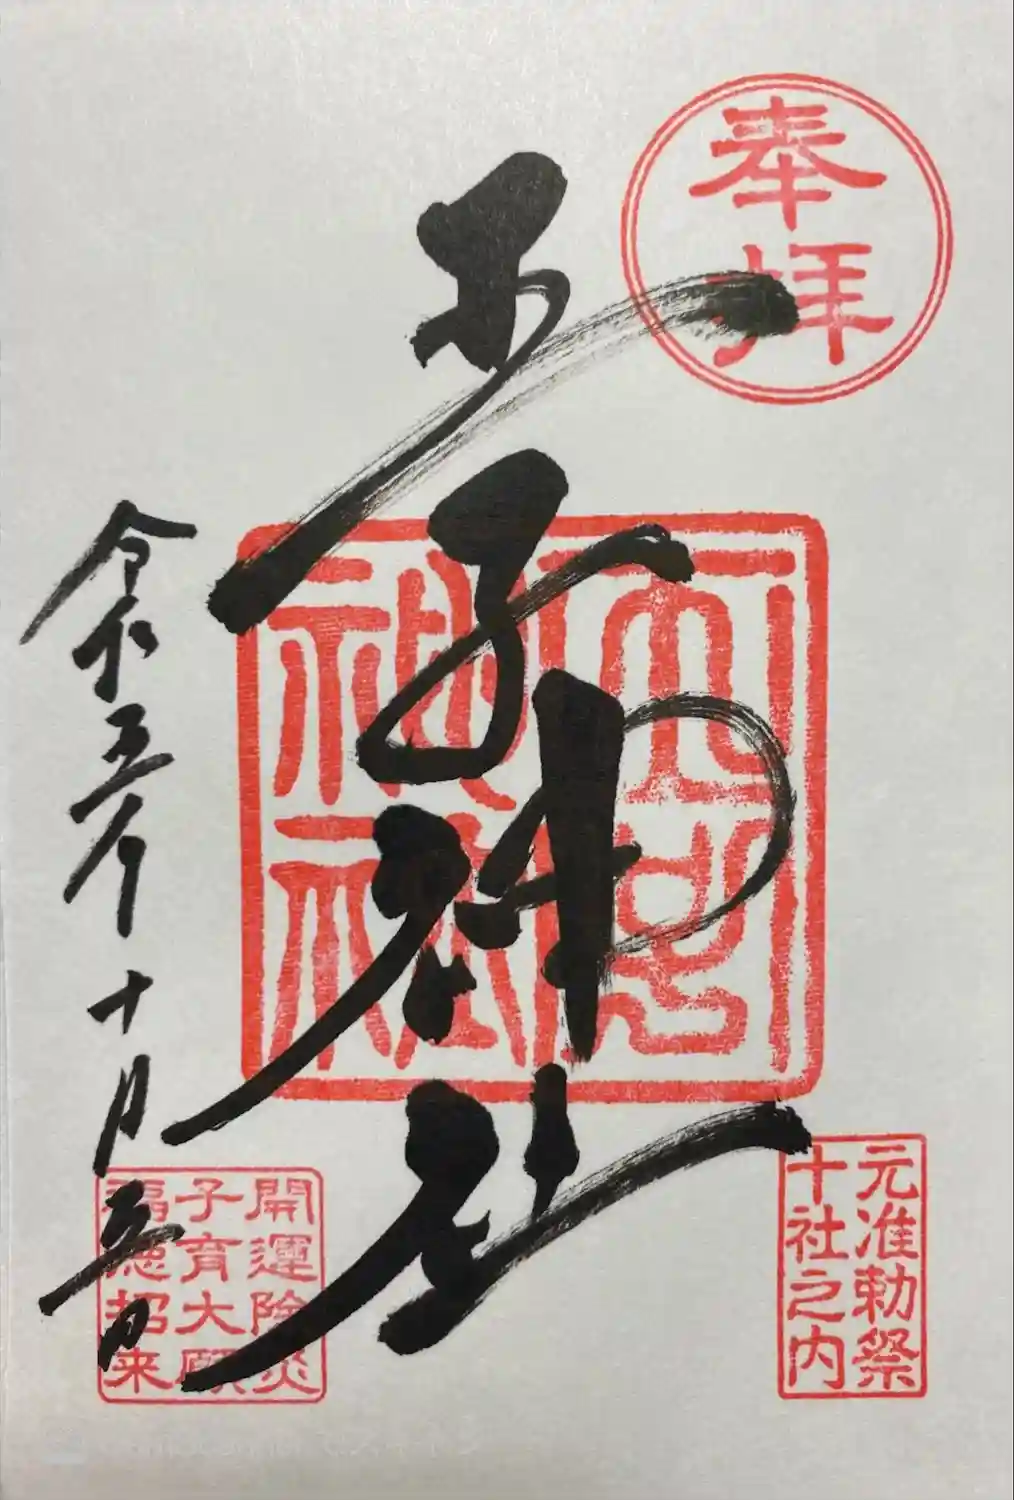 奉拝
元准勅祭
十社之内
王子神社
神社
開運除災
子育大願
福徳招来
令和五年十月五日